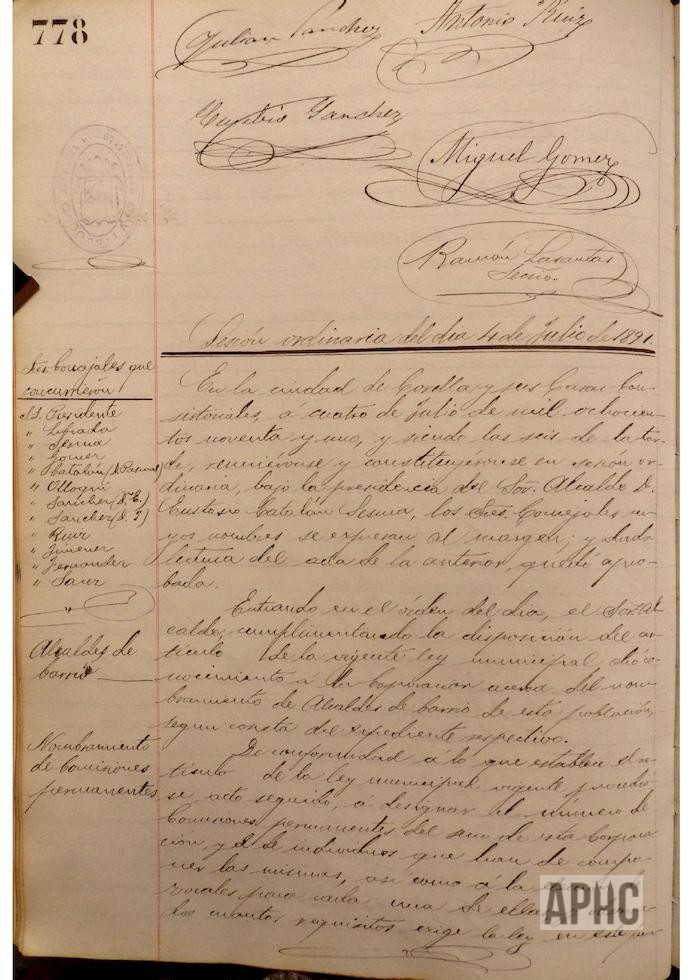 778
Julian Sanchez
Antonio Ruiz
Eusebio Sanchez
Miguel Gomez
Ramón Lasantas
Secrio.
Sesión ordinaria del dia 4 de julio de 1891.
Sres. Concejales que
concurrieron
Sr. Presidente
" Librada
" Sesma
" Gomez
" Catalán (D. Pascual)
" Olloqui
" Sanchez (D. E.)
" Sanchez (D. J)
" Ruiz
" Jimenez
" Fernandez
" Sanz
En la ciudad de Corella y sus Casas Con-
sistoriales, á cuatro de julio de mil ochocien-
tos noventa y uno, y siendo las seis de la tar-
de, reuniéronse y constituyéronse en sesión or-
dinaria, bajo la presidencia del Sor. Alcalde D.
Eustasio Catalán Sesma, los Sres. Concejales cu-
yos nombres se expresan al margen; y dada
lectura del acta de la anterior, quedó apro-
bada.
Alcaldes de
barrio
Entrando en el órden del dia, el Sor. Al-
calde, cumplimentando la disposición del ar-
tículo de la vigente ley municipal, dió co-
nocimiento á la Corporación acerca del nom-
bramiento de Alcaldes de barrio de esta población,
segun consta del expediente respectivo.
Nombramiento
de Comisiones
permanentes
De conformidad á lo que establece el ar-
tículo de la ley municipal vigente procedió-
se, acto seguido, á designar el número de
Comisiones permanentes del seno de esta Corpora-
ción, y el de individuos que han de compo-
ner las mismas, asi como á la
vocales para cada una de ellas
los cuantos requisitos exige la ley en este par-
APHC